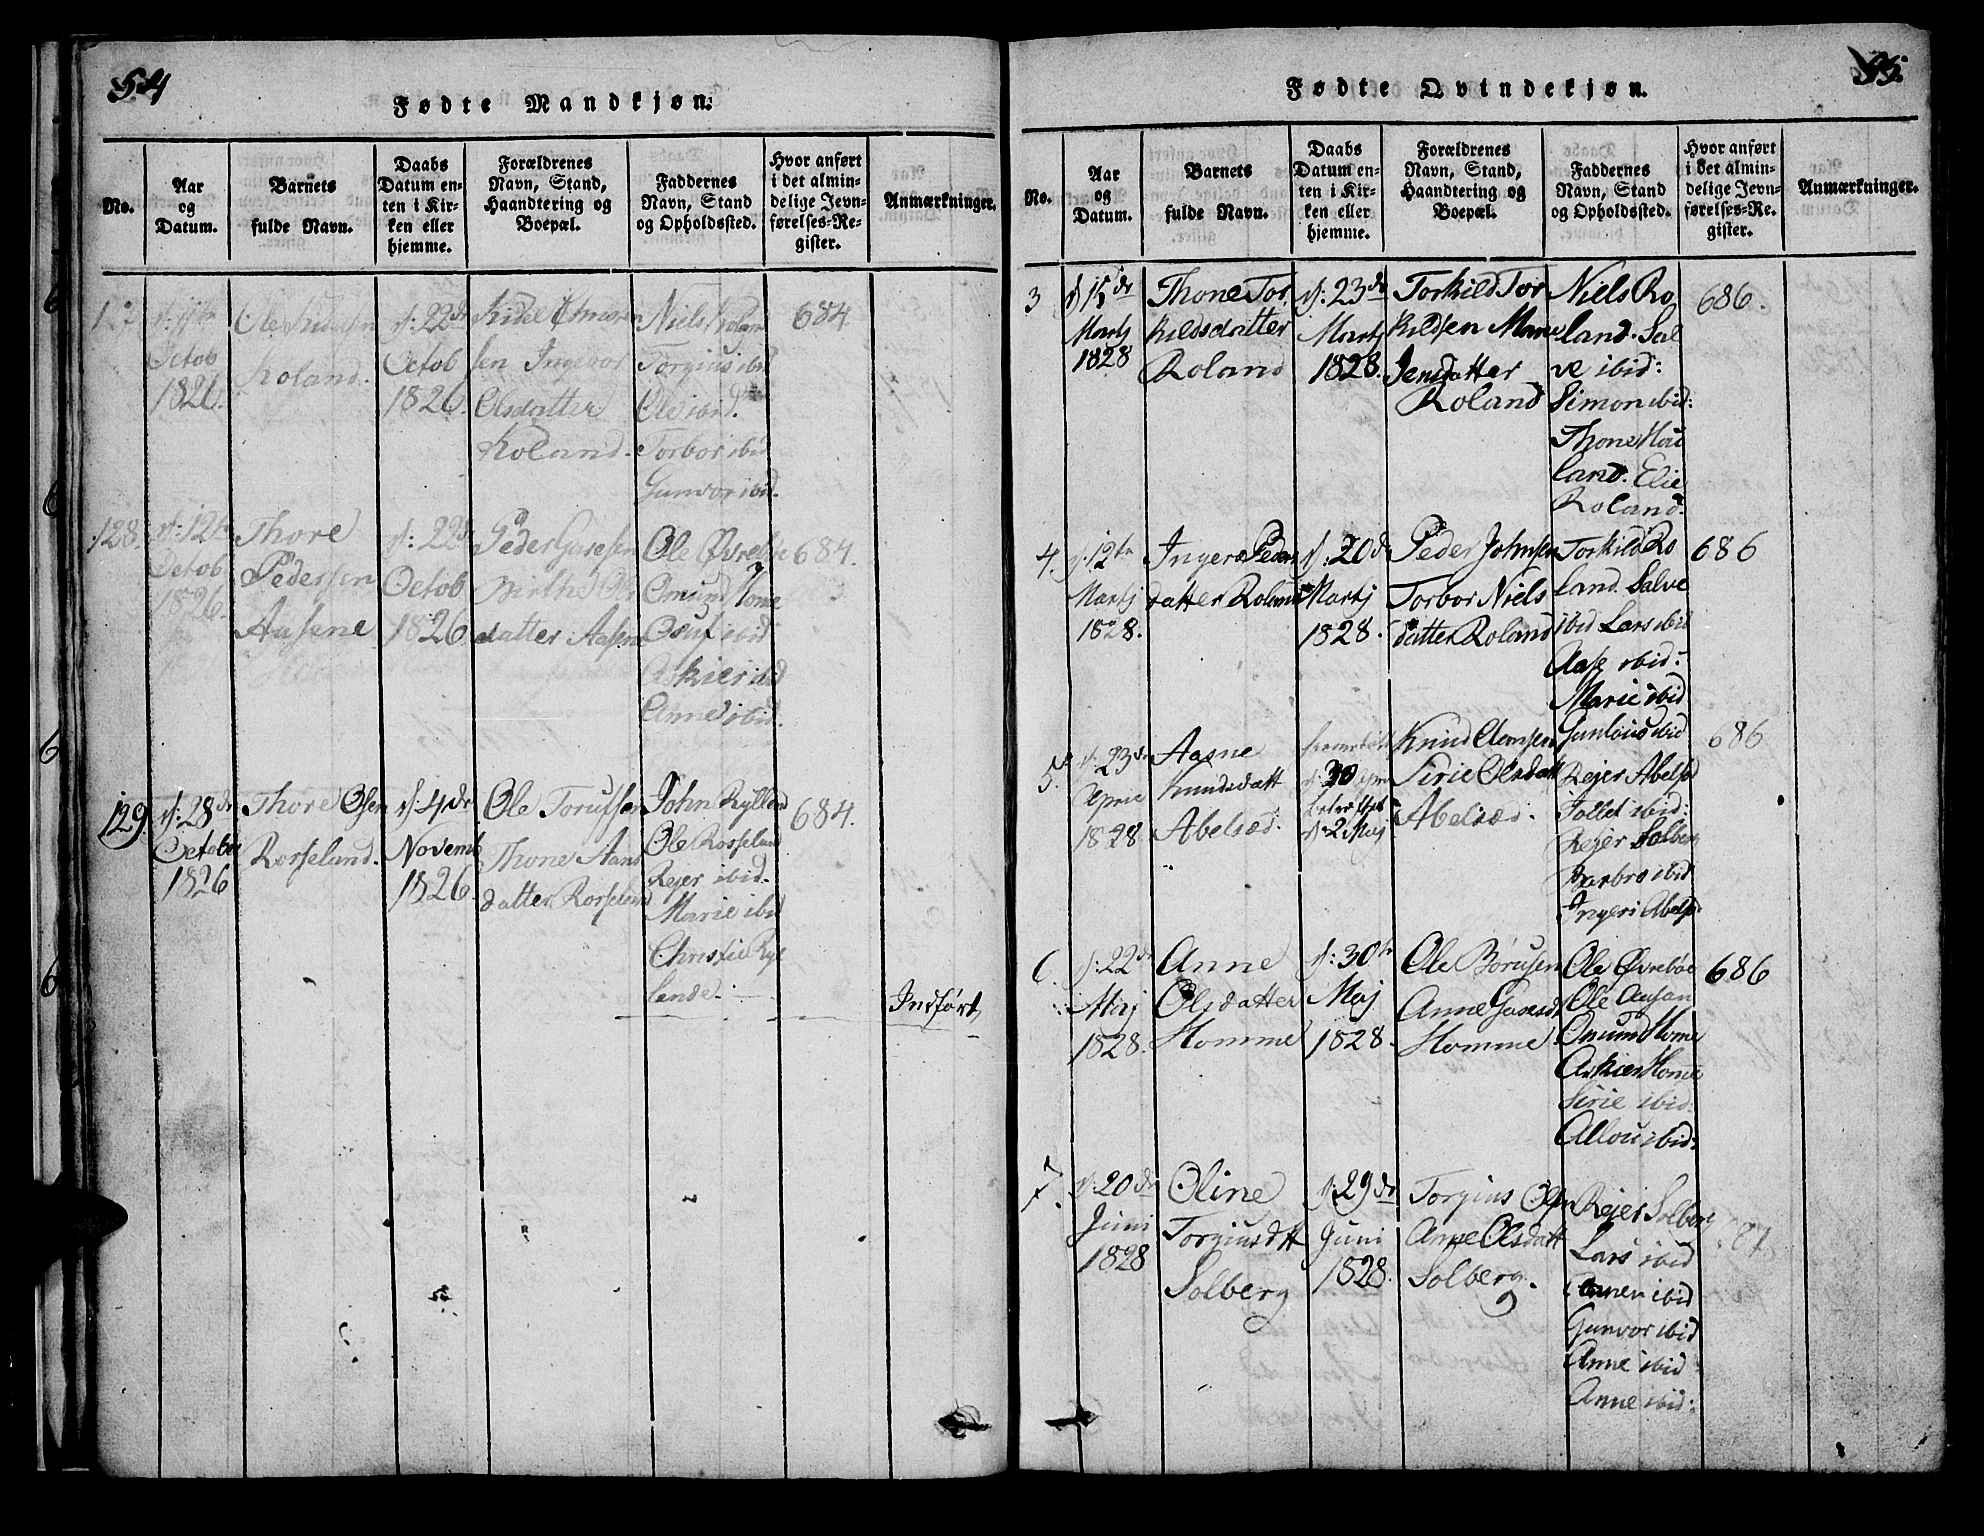 54
Fødte Mandkjøn.
No.
Aar
og
Datum.
Barnets
fulde Navn.
Daabs
Datum en-
ten i Kir-
ken eller
hjemme.
Forældrenes
Navn, Stand,
Haandtering og
Boepæl.
Faddernes
Navn, Stand
og Opholdssted.
Hvor anført
i det almin-
delige Jevn-
førelses-Re-
gister.
Anmærkninger.
Octob
1826.
Ole
Roland.
d: 22d
Octob
1826.
Kidel
sen Ingebor
Olsdatter
Roland.
Niels Roland
Torgius ibid
Ole ibid.
Torbor ibid
Gunvor ibid.
684
128.
d: 12te
Octob
1826.
Thore
Pedersen
Aasene
d: 22d
Octob
1826.
Peder
Birthe Ols
datter Aasene
Ole Øvrebøe
Omund Home
Osuf ibid
Askier ibid
Anne ibid.
684.
129.
d: 28de
October
1826
Thore Olsen
Rosseland.
d: 4de
Novemb
1826.
Ole Torufsen
Thone Aans
datter Rosseland
John Rylland
Ole Rosseland
Rejer ibid.
Marie ibid
Christie Ryl
lende.
684.
Indført,
55.
Fødte Qvindekjøn.
No.
Aar
og
Datum.
Barnets
fulde Navn.
Daabs
Datum en-
ten i Kir-
ken eller
hjemme.
Forældrenes
Navn, Stand,
Haandtering og
Boepæl.
Faddernes
Navn, Stand
og Opholdssted.
Hvor anført
i det almin-
delige Jevn-
førelses-Re-
gister.
Anmærkninger.
3
d 15de
Martj
1828
Thone Tor
kildsdatter
Roland
d: 23de
Martj
1828.
Torkild Tor
kildsen Marie
Jensdatter
Roland
Niels Ro
land. Sal
ve ibid:
Simon ibid:
Thone Hou
land. Elie
Roland.
686.
4.
d. 12te
Martj
1828.
Ingeri Peders
datter Roland
d: 20de
Martj
1828.
Peder Johnsen
Torbor Niels
datter Roland
Torkild Ro
land. Salve
ibid Lars ibid
Aase ibid:
Marie ibid
Gunlous ibid
686
5.
d: 23de
April
1828
Aasne
Knudsdatt
Abelsæd.
d: 30 April
d: 2 Maj
Knud Aamsen
Sirie Olsdatt
Abelsæd.
Rejer Abelsæd
Tollef ibid:
Rejer Solberg
Barbro ibid
Ingeri Abelsæd
686
6.
d: 22de
Maj
1828.
Anne
Olsdatter
Homme
d: 30te
Maj
1828.
Ole Børusen
Anne Gunesdt
Homme
Ole Øvrebøe
Ole Aasan
Omund Home
Askier Home
Sirie ibid:
Allou ibid:
686
7.
d: 20de
Juni
1828
Oline
Torgiusdtt
Solberg
d: 29de
Juni
1828.
Torgius Olsen
Anne Olsdatt
Solberg.
Rejer Solberg
Lars ibid
ibid
Gunvor ibid
Anne ibid
Anne ibid:
687